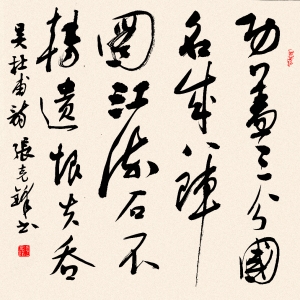 功蓋三分國
名成八陣
圖江流石不
轉遺恨失吞
吴杜甫詩張克鋒书